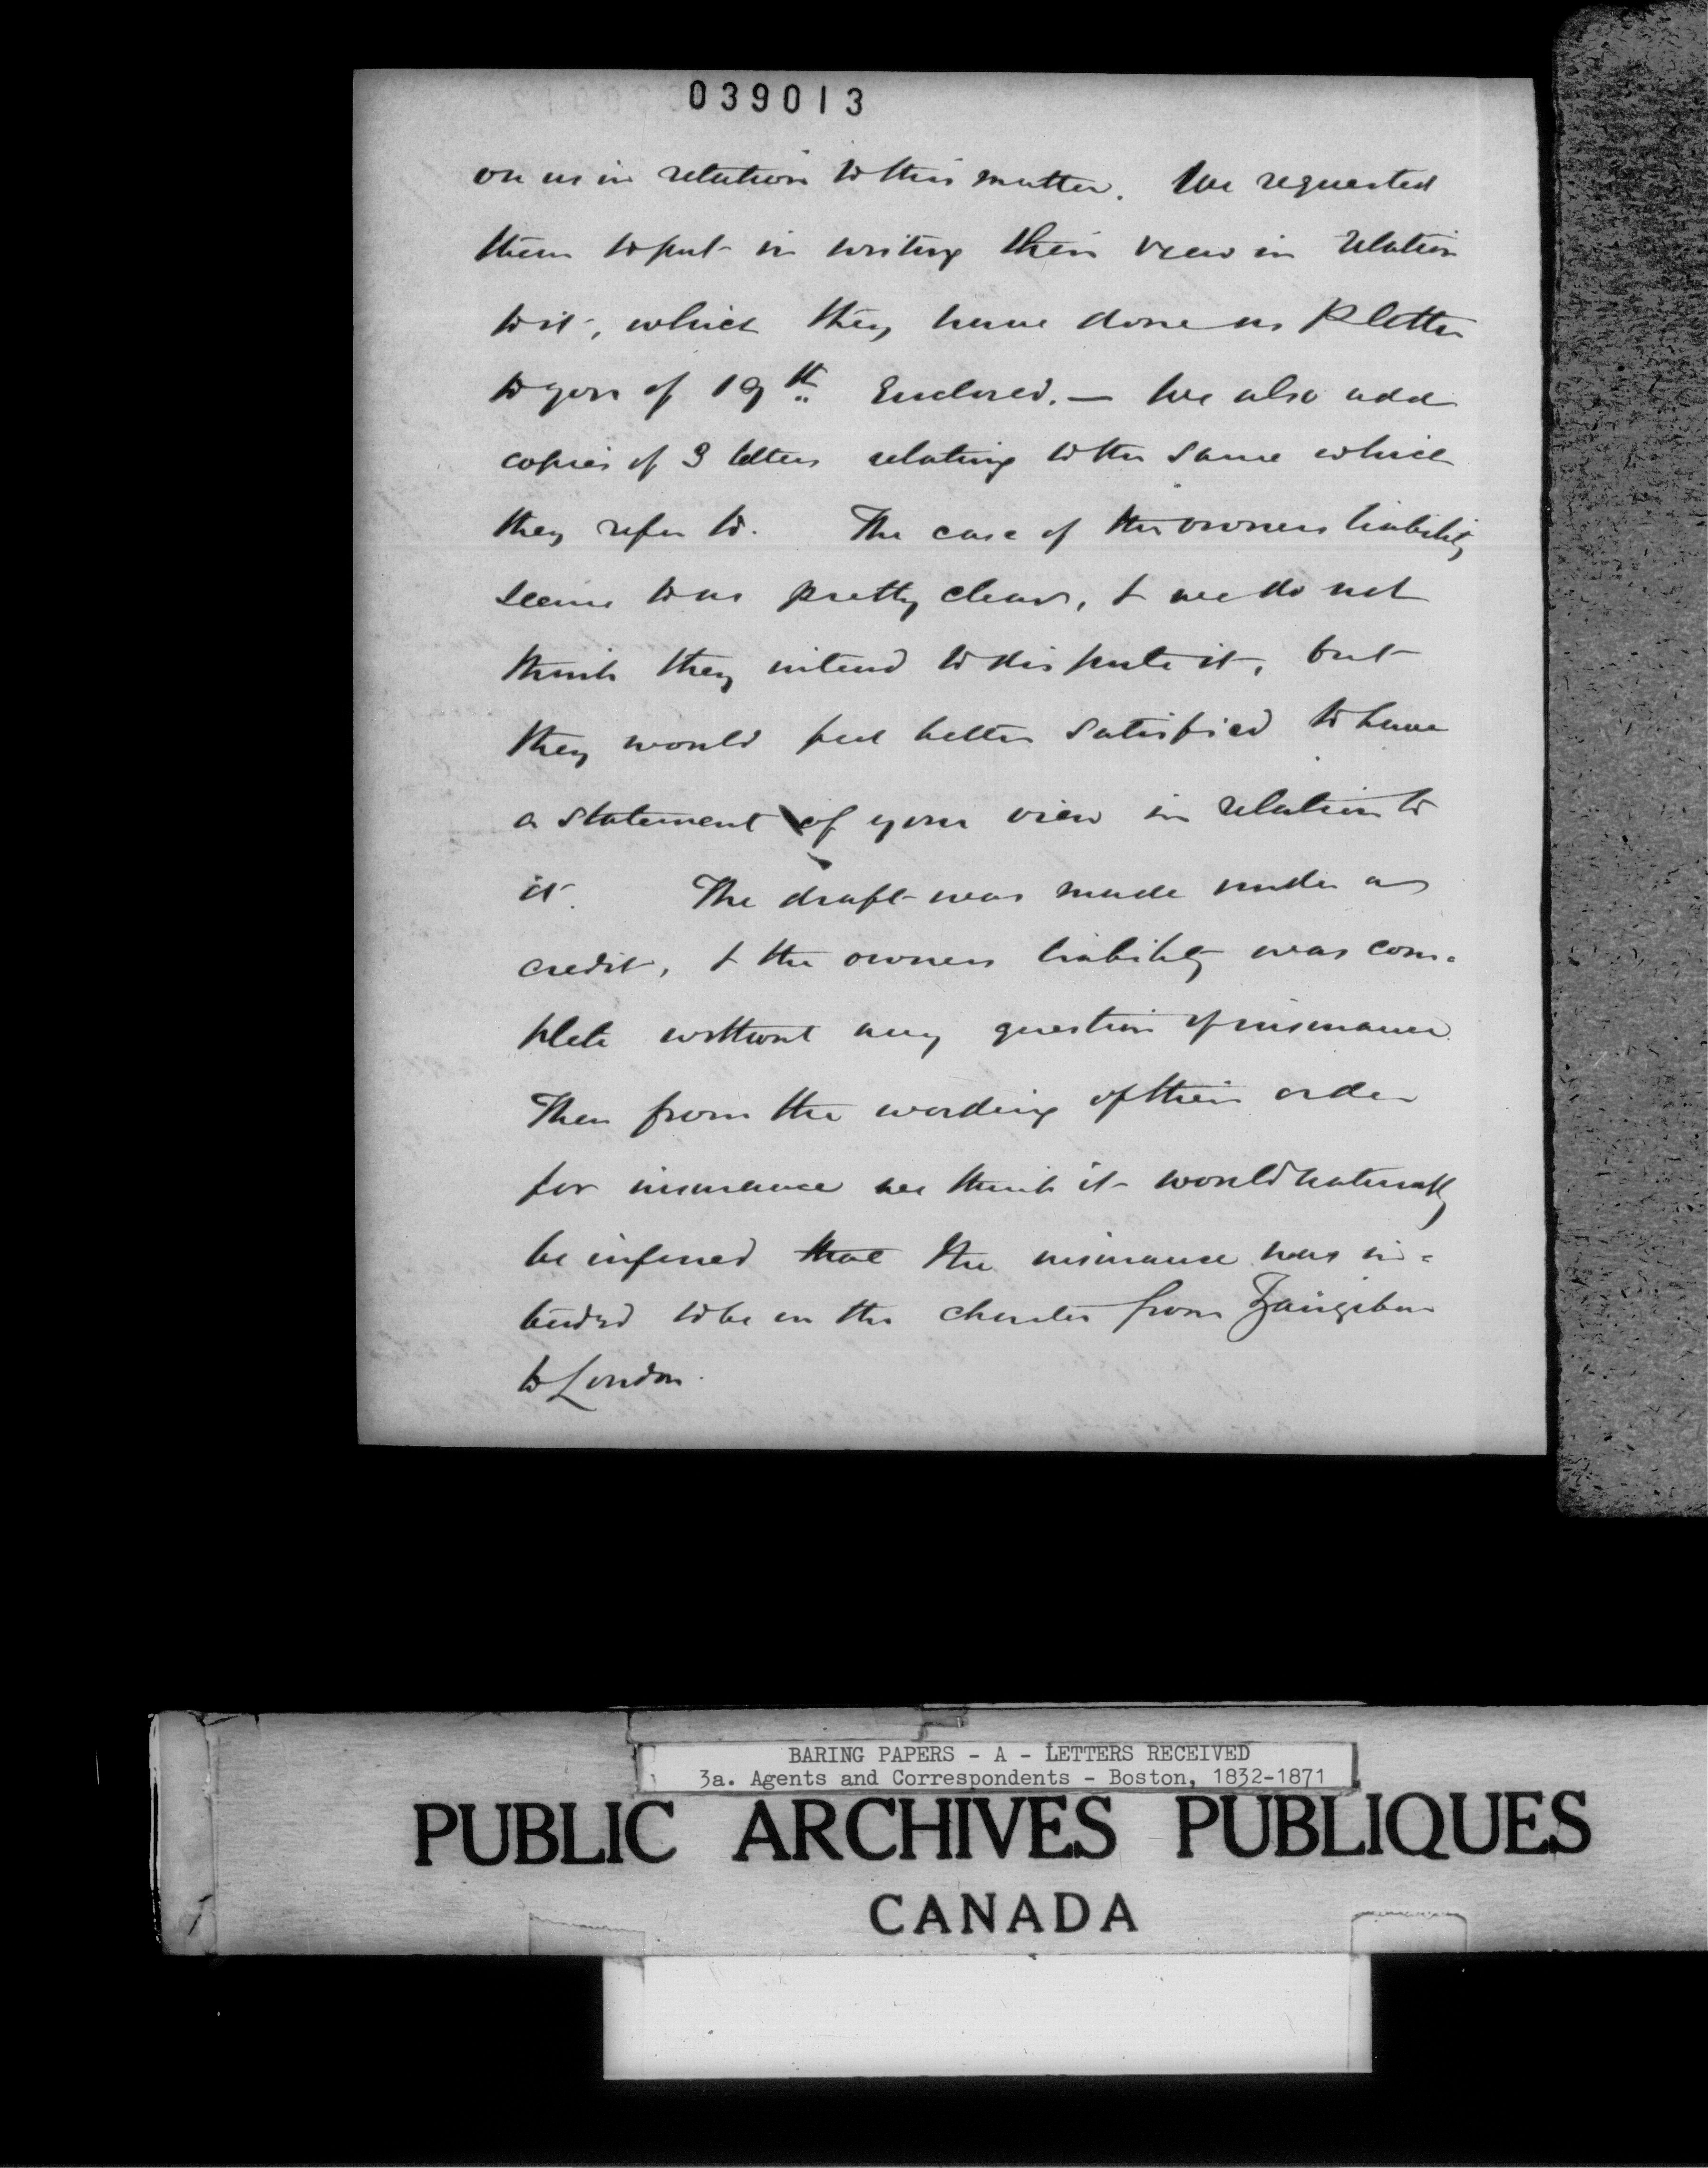 039013
on us in relation to this matter. We requested
them to put in writing their view in relation
to it, which they have done as P letter
to you of 19th Enclosed. — We also add
copies of 3 letters relating to the same which
they refer to. The case of the owners liability
seems to us pretty clear, & we do not
think they intend to dispute it, but
they would feel better satisfied to have
a statement of your view in relation to
it. The draft was made under a
credit, & the owners liability was com=
plete without any question of insurance.
Then from the wording of their order
for insurance we think it would naturally
be inferred that the insurance was in=
tended to be on the charter from Zanzibar
to London.
BARING PAPERS - A - LETTERS RECEIVED
3a. Agents and Correspondents - Boston, 1832-1871
PUBLIC ARCHIVES PUBLIQUES
CANADA